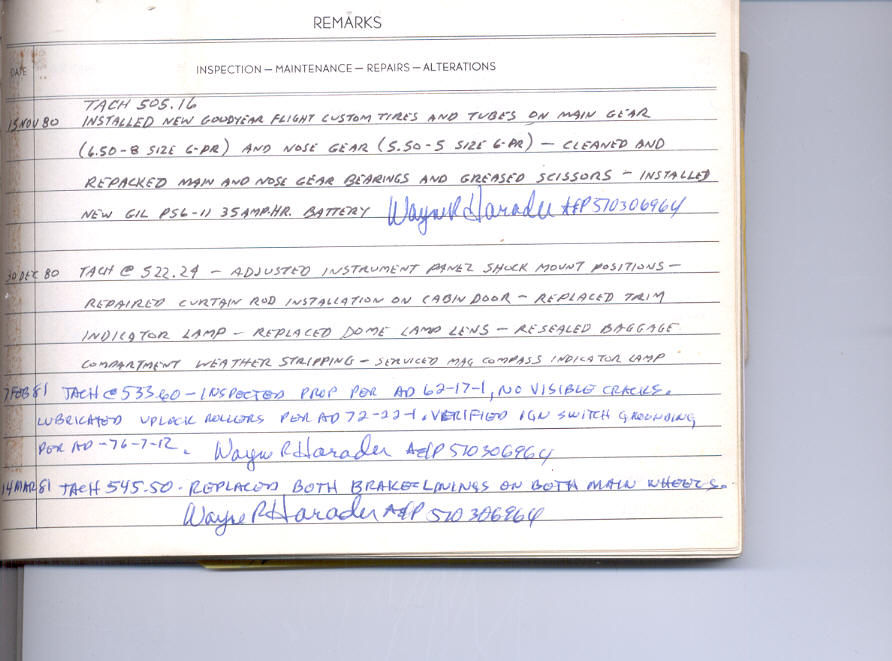 REMARKS
DATE
INSPECTION — MAINTENANCE — REPAIRS — ALTERATIONS
TACH 505.16
15 NOV 80 INSTALLED NEW GOODYEAR FLIGHT CUSTOM TIRES AND TUBES ON MAIN GEAR
(6.50-8 SIZE 6-PR) AND NOSE GEAR (5.50-5 SIZE 6-PR) — CLEANED AND
REPACKED MAIN AND NOSE GEAR BEARINGS AND GREASED SCISSORS - INSTALLED
NEW GIL PS6-11 35AMP.HR. BATTERY Wayne R Harader A&P 510306964
30 DEC 80 TACH @ 522.24 - ADJUSTED INSTRUMENT PANEL SHOCK MOUNT POSITIONS -
REPAIRED CURTAIN ROD INSTALLATION ON CABIN DOOR - REPLACED TRIM
INDICATOR LAMP - REPLACED DOME LAMP LENS - RESEALED BAGGAGE
COMPARTMENT WEATHER STRIPPING - SERVICED MAG COMPASS INDICATOR LAMP
7 FEB 81 TACH @ 533.60 - INSPECTED PROP PER AD 62-17-1, NO VISIBLE CRACKS.
LUBRICATED UPLOCK ROLLERS PER AD 72-22-1. VERIFIED IGN SWITCH GROUNDING
PER AD -76-7-12. Wayne R Harader A&P 510306964
14 MAR 81 TACH 545.50 - REPLACED BOTH BRAKE LININGS ON BOTH MAIN WHEELS.
Wayne R Harader A&P 510306964